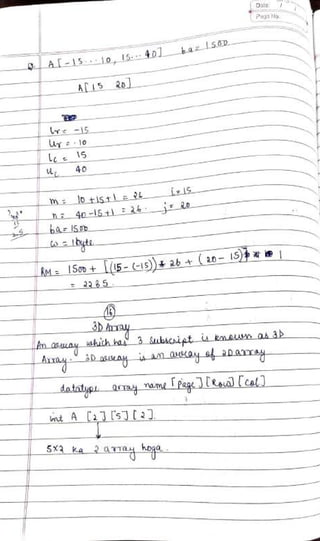 Date: / /
Page No.
Q. A[-15...10, 15...40] ba = 1500
A[15 20]
lr = -15
ur = 10
lc = 15
uc 40
m = 10+15+1 = 26 i = 15
n = 40-15+1 = 26. j = 20
ba = 1500
w = 1 byte
RM = 1500 + [(15-(-15)) * 26 + (20-15)] * 1
= 2285.
3D Array
An array which has 3 subscript is known as 3D
Array. 3D array is an array of 2D array
datatype array name [Page] [Row] [Col]
int A [2] [5] [2]
5x2 ka 2 array hoga.